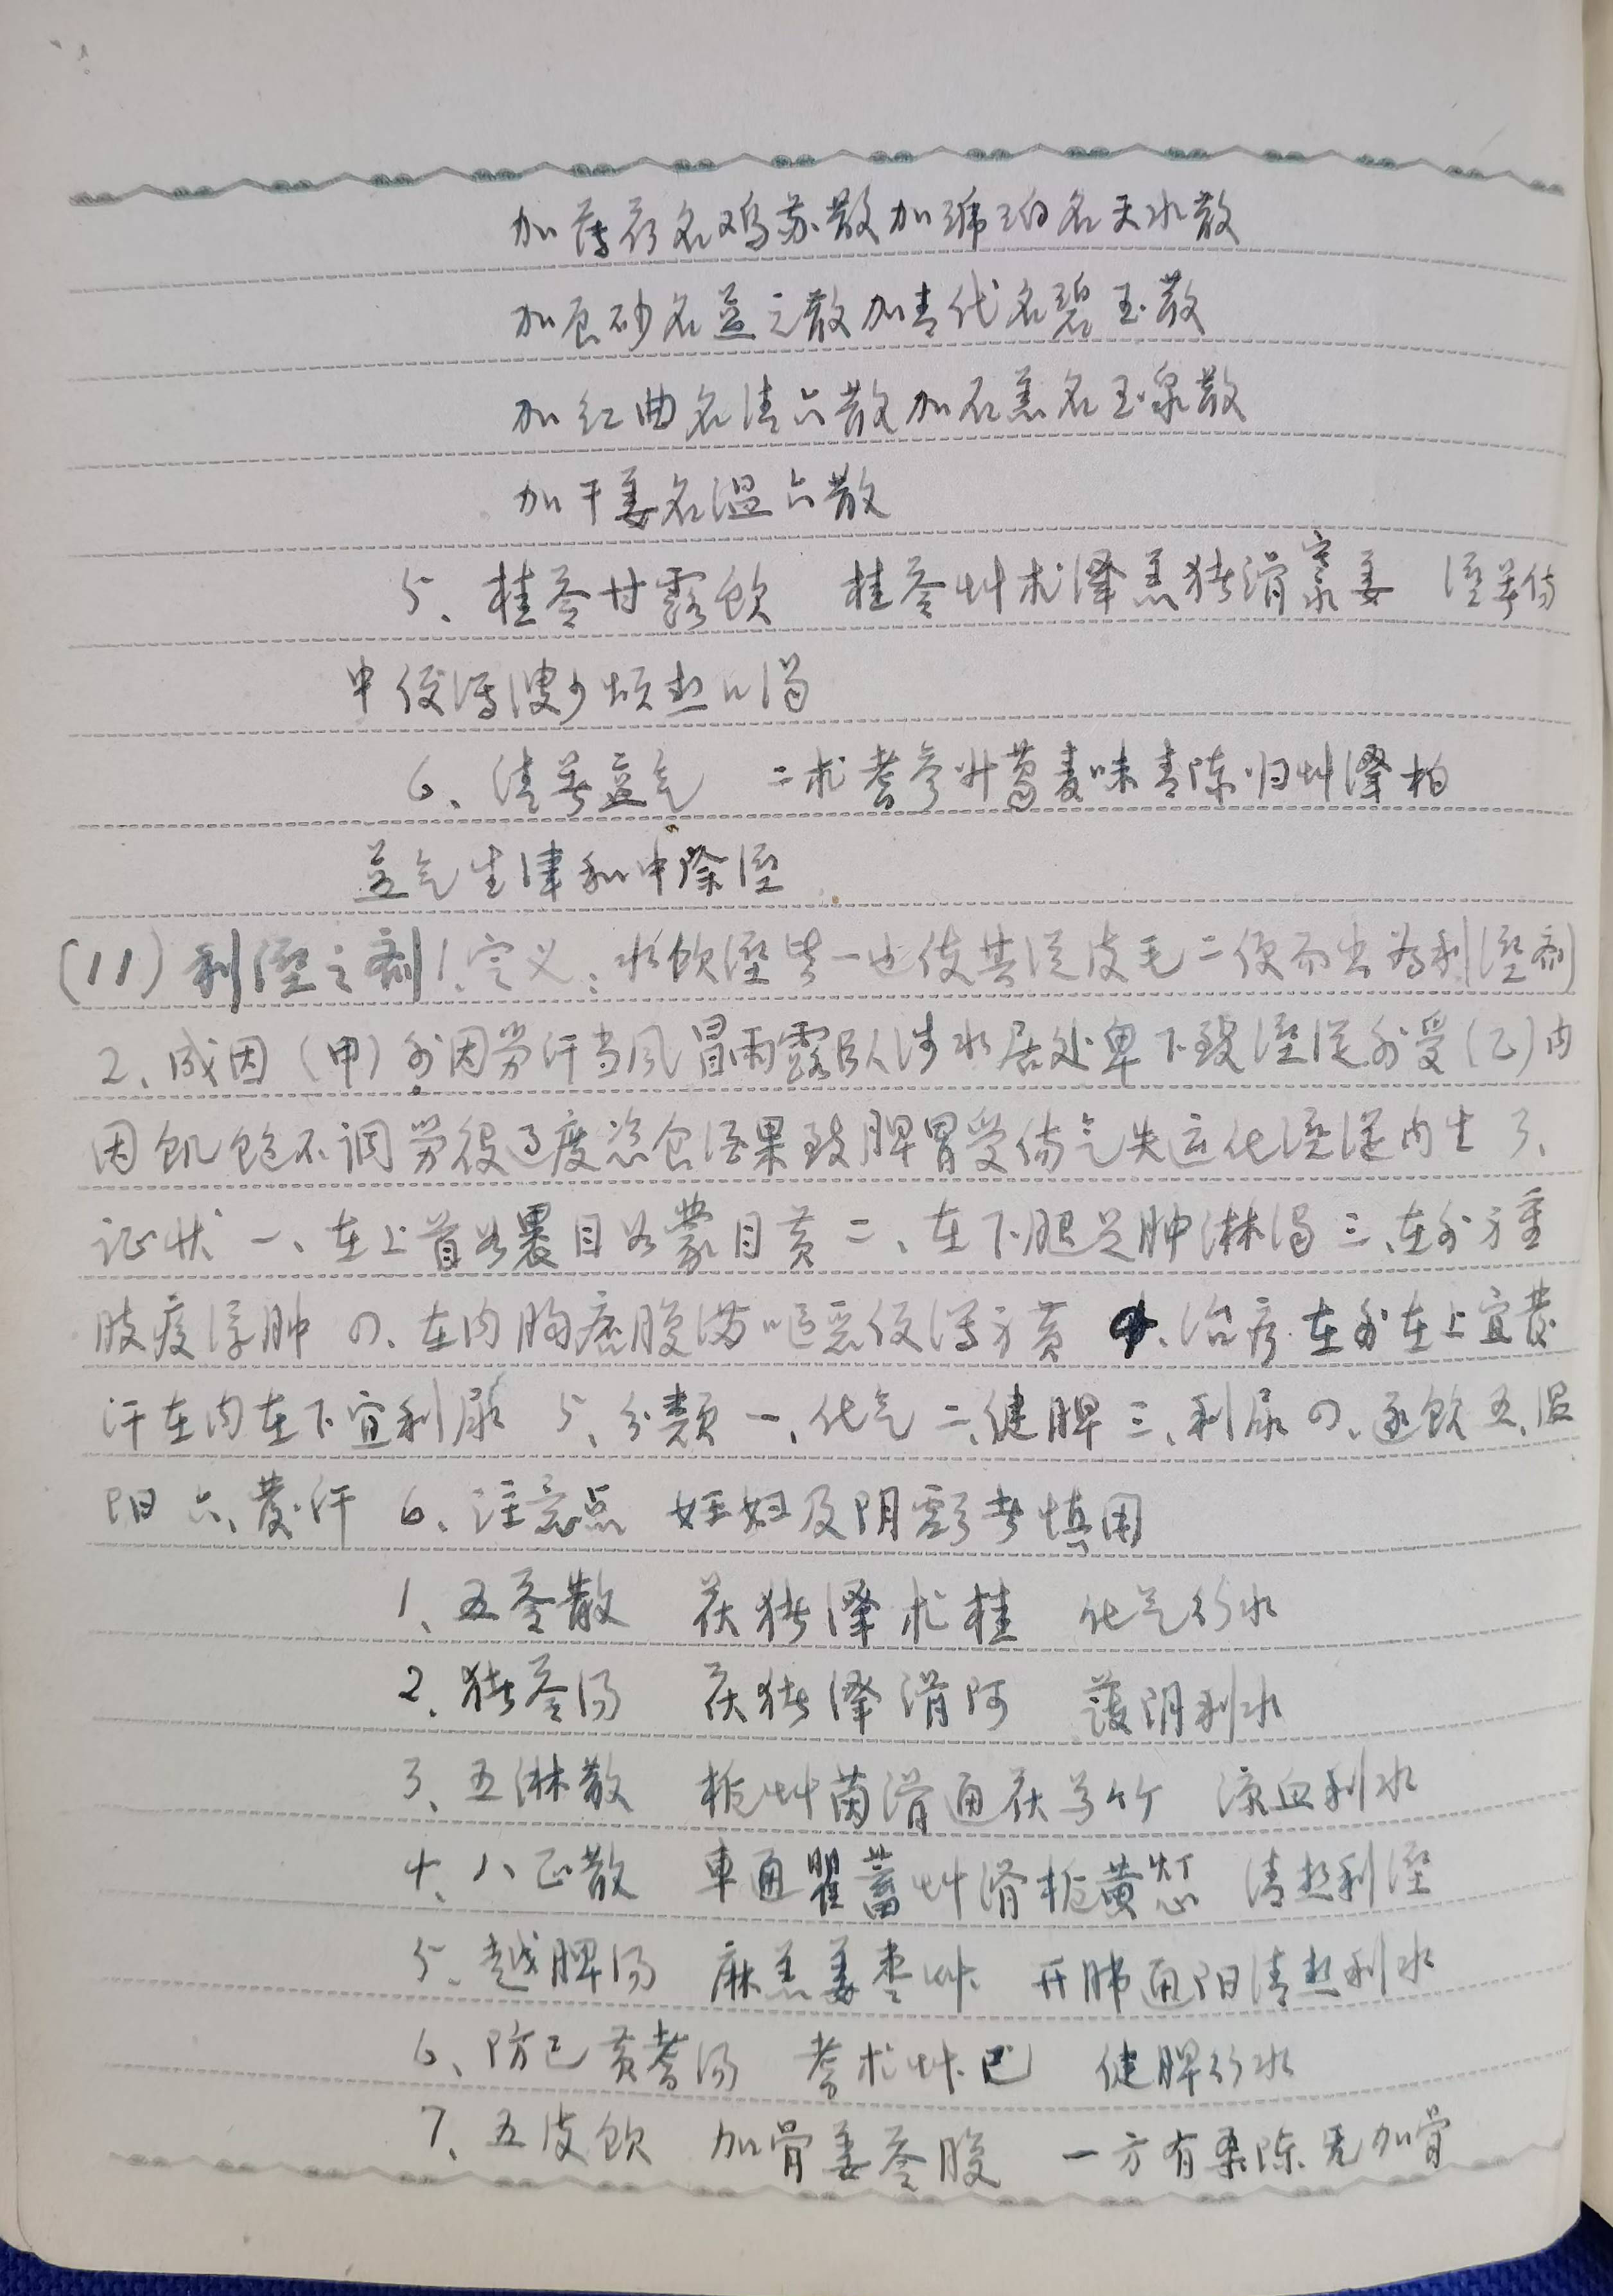 加薄荷名鸡苏散加琥珀名天水散
加辰砂名益元散加青代名碧玉散
加红曲名清六散加石羔名玉泉散
加干姜名温六散
5、桂苓甘露饮 桂苓草术泽羔猪滑寒姜 湿暑伤
中便泻溲少烦热口渴
6、清暑益气 二术耆参升葛麦味青陈归草泽柏
益气生津和中除湿
(11)利湿之剂1、定义:水饮湿皆一也使其従皮毛二便而出为利湿剂
2、成因(甲)外因劳汗当风冒雨露卧涉水居处卑下致湿従外受(乙)内
因饥饱不调劳役过度恣食酒果致脾胃受伤气失运化湿従内生 3、
证状 一、在上首如裹目如蒙目黄 二、在下腿足肿淋浊 三、在外方重
肢痠浮肿 四、在内胸痞腹满呕恶便泻方黄 4、治疗在外在上宜发
汗在内在下宜利尿 5、分类 一、化气 二、健脾 三、利尿 四、逐饮 五、温
阳 六、发汗 6、注意点 妊妇及阴虚者慎用
1、五苓散 茯猪泽术桂 化气行水
2、猪苓汤 茯猪泽滑阿 护阴利水
3、五淋散 栀草茵滑通茯芍竹 凉血利水
4、八正散 車通瞿蓄草滑栀黄灯芯 清热利湿
5、越脾汤 麻羔姜枣草 开肺通阳清热利水
6、防己黄耆汤 耆术草巴 健脾行水
7、五皮饮 加骨姜苓腹 一方有桑陈无加骨